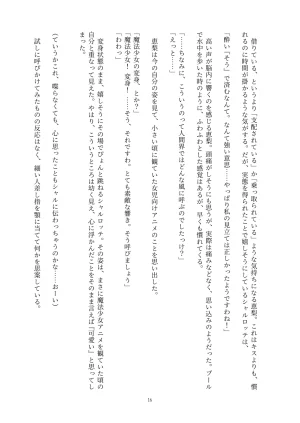 借りている、というより「支配されている」か「乗っ取られている」ような気持ちになる恵梨。これはキスよりも、慣
れるのに時間が掛かるような気がする。だが、実態を得られたことで嬉しそうにしているシャルロッテは、
「酔い『そう』で済むなんて。なんて強い意思……やっぱり私の見立ては正しかったようですわね！」
高い声が脳内に響くのを感じる恵梨。頭痛がしそうにも思うが、実際は痛みなどなく、思い込みのようだった。プール
で水中を歩いた時のように、ふわふわとした感覚はあるが、早くも慣れてきた。
「……ちなみに、こういうのって人間界ではどんな風に呼ぶのでしたっけ？」
「えっと……」
恵梨は今の自分の姿を見て、小さい頃に観ていた女児向けアニメのことを思い出した。
「魔法少女の変身、とか？」
「魔法少女！　変身！　……そう、それですわ。とても素敵な響き。そう呼びましょう」
「わわっ」
変身状態のまま、嬉しそうにその場でぴょんと跳ねるシャルロッテ。その姿は、まさに魔法少女アニメを観ていた頃の
自分と重なって見えた。やはり、こういうところは幼く見え、心に浮かんだことをそのまま言えば「可愛い」と思ってし
まう。
（ていうかこれ、喋らなくても、心に思ったこともシャルに伝わっちゃうのかな……おーい）
試しに呼びかけてみたものの反応はなく、細い人差し指を顎に当てて何かを思案している。
16